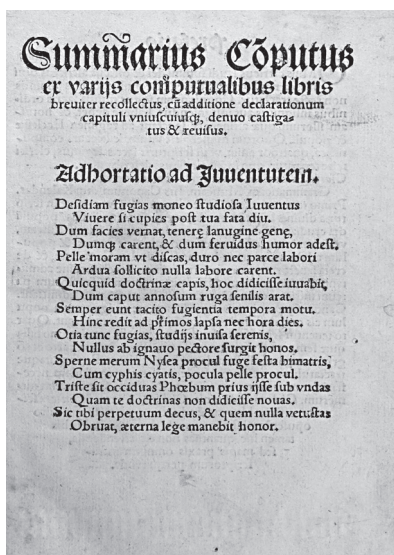 Summarius Cõputus
ex varijs compũtualibus libris
breuiter recollectus, cũ additione declarationum
capituli vniuscuiusq;, denuo castiga-
tus & reuisus.
Adhortatio ad Juuentutem.
Desidiam fugias moneo studiosa Iuuentus
Viuere si cupies post tua fata diu.
Dum facies vernat, tenerę lanugine genę,
Dumq; carent, & dum feruidus humor adest.
Pelle moram vt discas, duro nec parce labori
Ardua sollicito nulla labore carent.
Quicquid doctrinæ capis, hoc didicisse iuuabit,
Dum caput annosum ruga senilis arat.
Semper eunt tacito fugientia tempora motu.
Hinc redit ad primos lapsa nec hora dies.
Otia tunc fugias, studijs inuisa serenis,
Nullus ab ignauo pectore surgit honos.
Sperne merum Nysea procul fuge festa bimatris,
Cum cyphis cyatis, pocula pelle procul.
Triste sit occiduas Phœbum prius ijsse sub vndas
Quam te doctrinas non didicisse nouas.
Sic tibi perpetuum decus, & quem nulla vetustas
Obruat, æterna lege manebit honor.